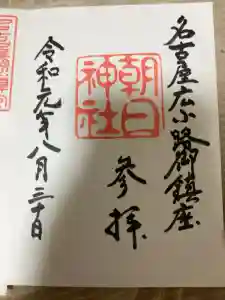 名古屋広小路御鎮座
朝日神社
参拝
令和元年八月三十日